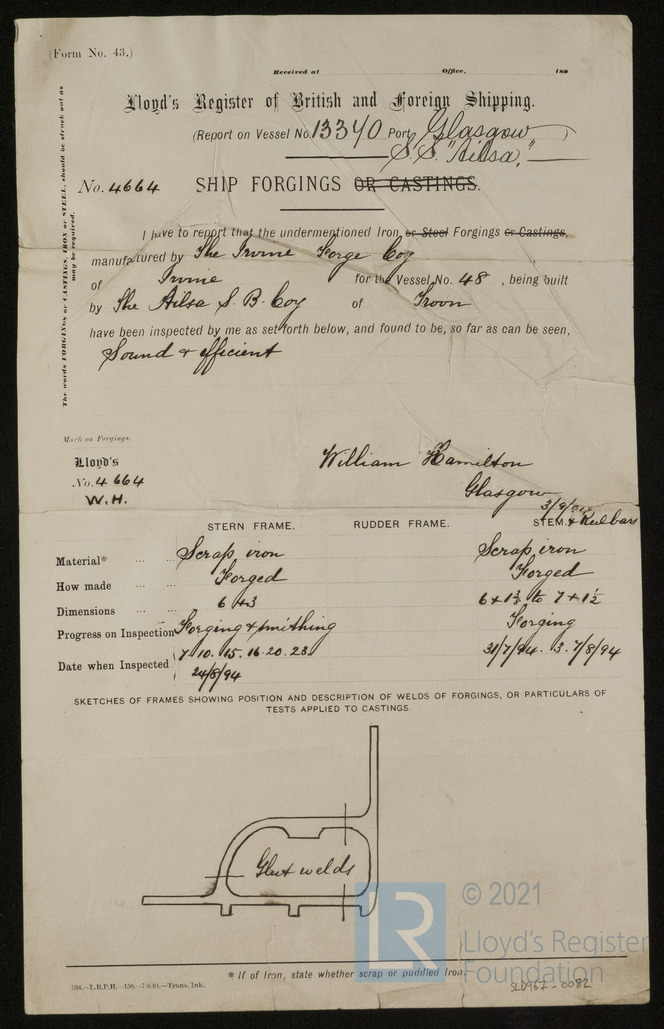 (Form No. 43.)
Received at Office, 189
Lloyd's Register of British and Foreign Shipping.
(Report on Vessel No. 13340 Port Glasgow)
S.S. "Ailsa,"
No. 4664 SHIP FORGINGS OR CASTINGS.
The words FORGINGS or CASTINGS, IRON or STEEL, should be struck out as
may be required.
I have to report that the undermentioned Iron, or Steel Forgings or Castings,
manufactured by The Irvine Forge Coy
of Irvine for the Vessel No. 48 , being built
by The Ailsa S. B. Coy of Troon
have been inspected by me as set forth below, and found to be, so far as can be seen,
Sound & efficient
Mark on Forgings.
Lloyd's
No. 4664
W.H.
William Hamilton
Glasgow
3/9/94
STERN FRAME. RUDDER FRAME. STEM. & Keelbars
Material* Scrap iron Scrap iron
How made Forged Forged
Dimensions 6 + 3 6 + 1 3/4 to 7 + 1 1/2
Progress on Inspection Forging & smithing Forging
Date when Inspected 7. 10. 15. 16. 20. 23. 31/7/94. 3. 7/8/94
24/8/94
SKETCHES OF FRAMES SHOWING POSITION AND DESCRIPTION OF WELDS OF FORGINGS, OR PARTICULARS OF
TESTS APPLIED TO CASTINGS.
Glut welds
* If of Iron, state whether scrap or puddled Iron.
534.—L.R.P.H.—150.—7.6.94.—Trans. Ink.
LR
© 2021
Lloyd's Register
Foundation
SLD967-0082